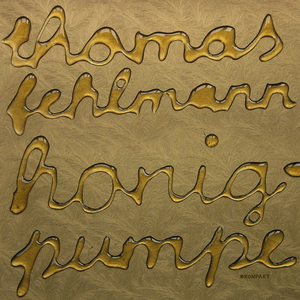 thomas
fehlmann
honig
pumpe
KOMPAKT